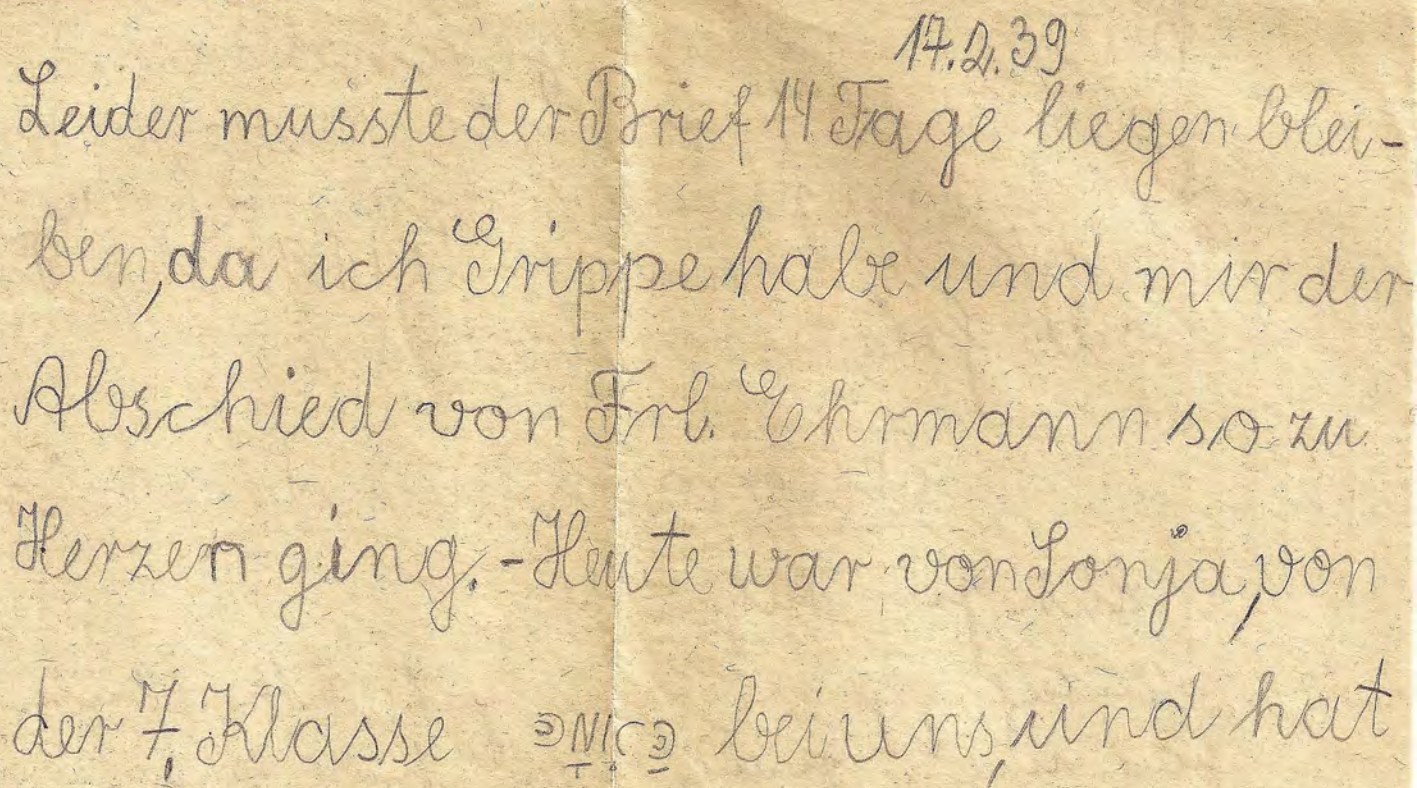 17.2.39
Leider musste der Brief 14 Tage liegen blei-
ben, da ich Grippe habe und mir der
Abschied von Frl. Ehrmann so zu
Herzen ging. - Heute war von Sonja, von
der 7. Klasse bei uns, und hat